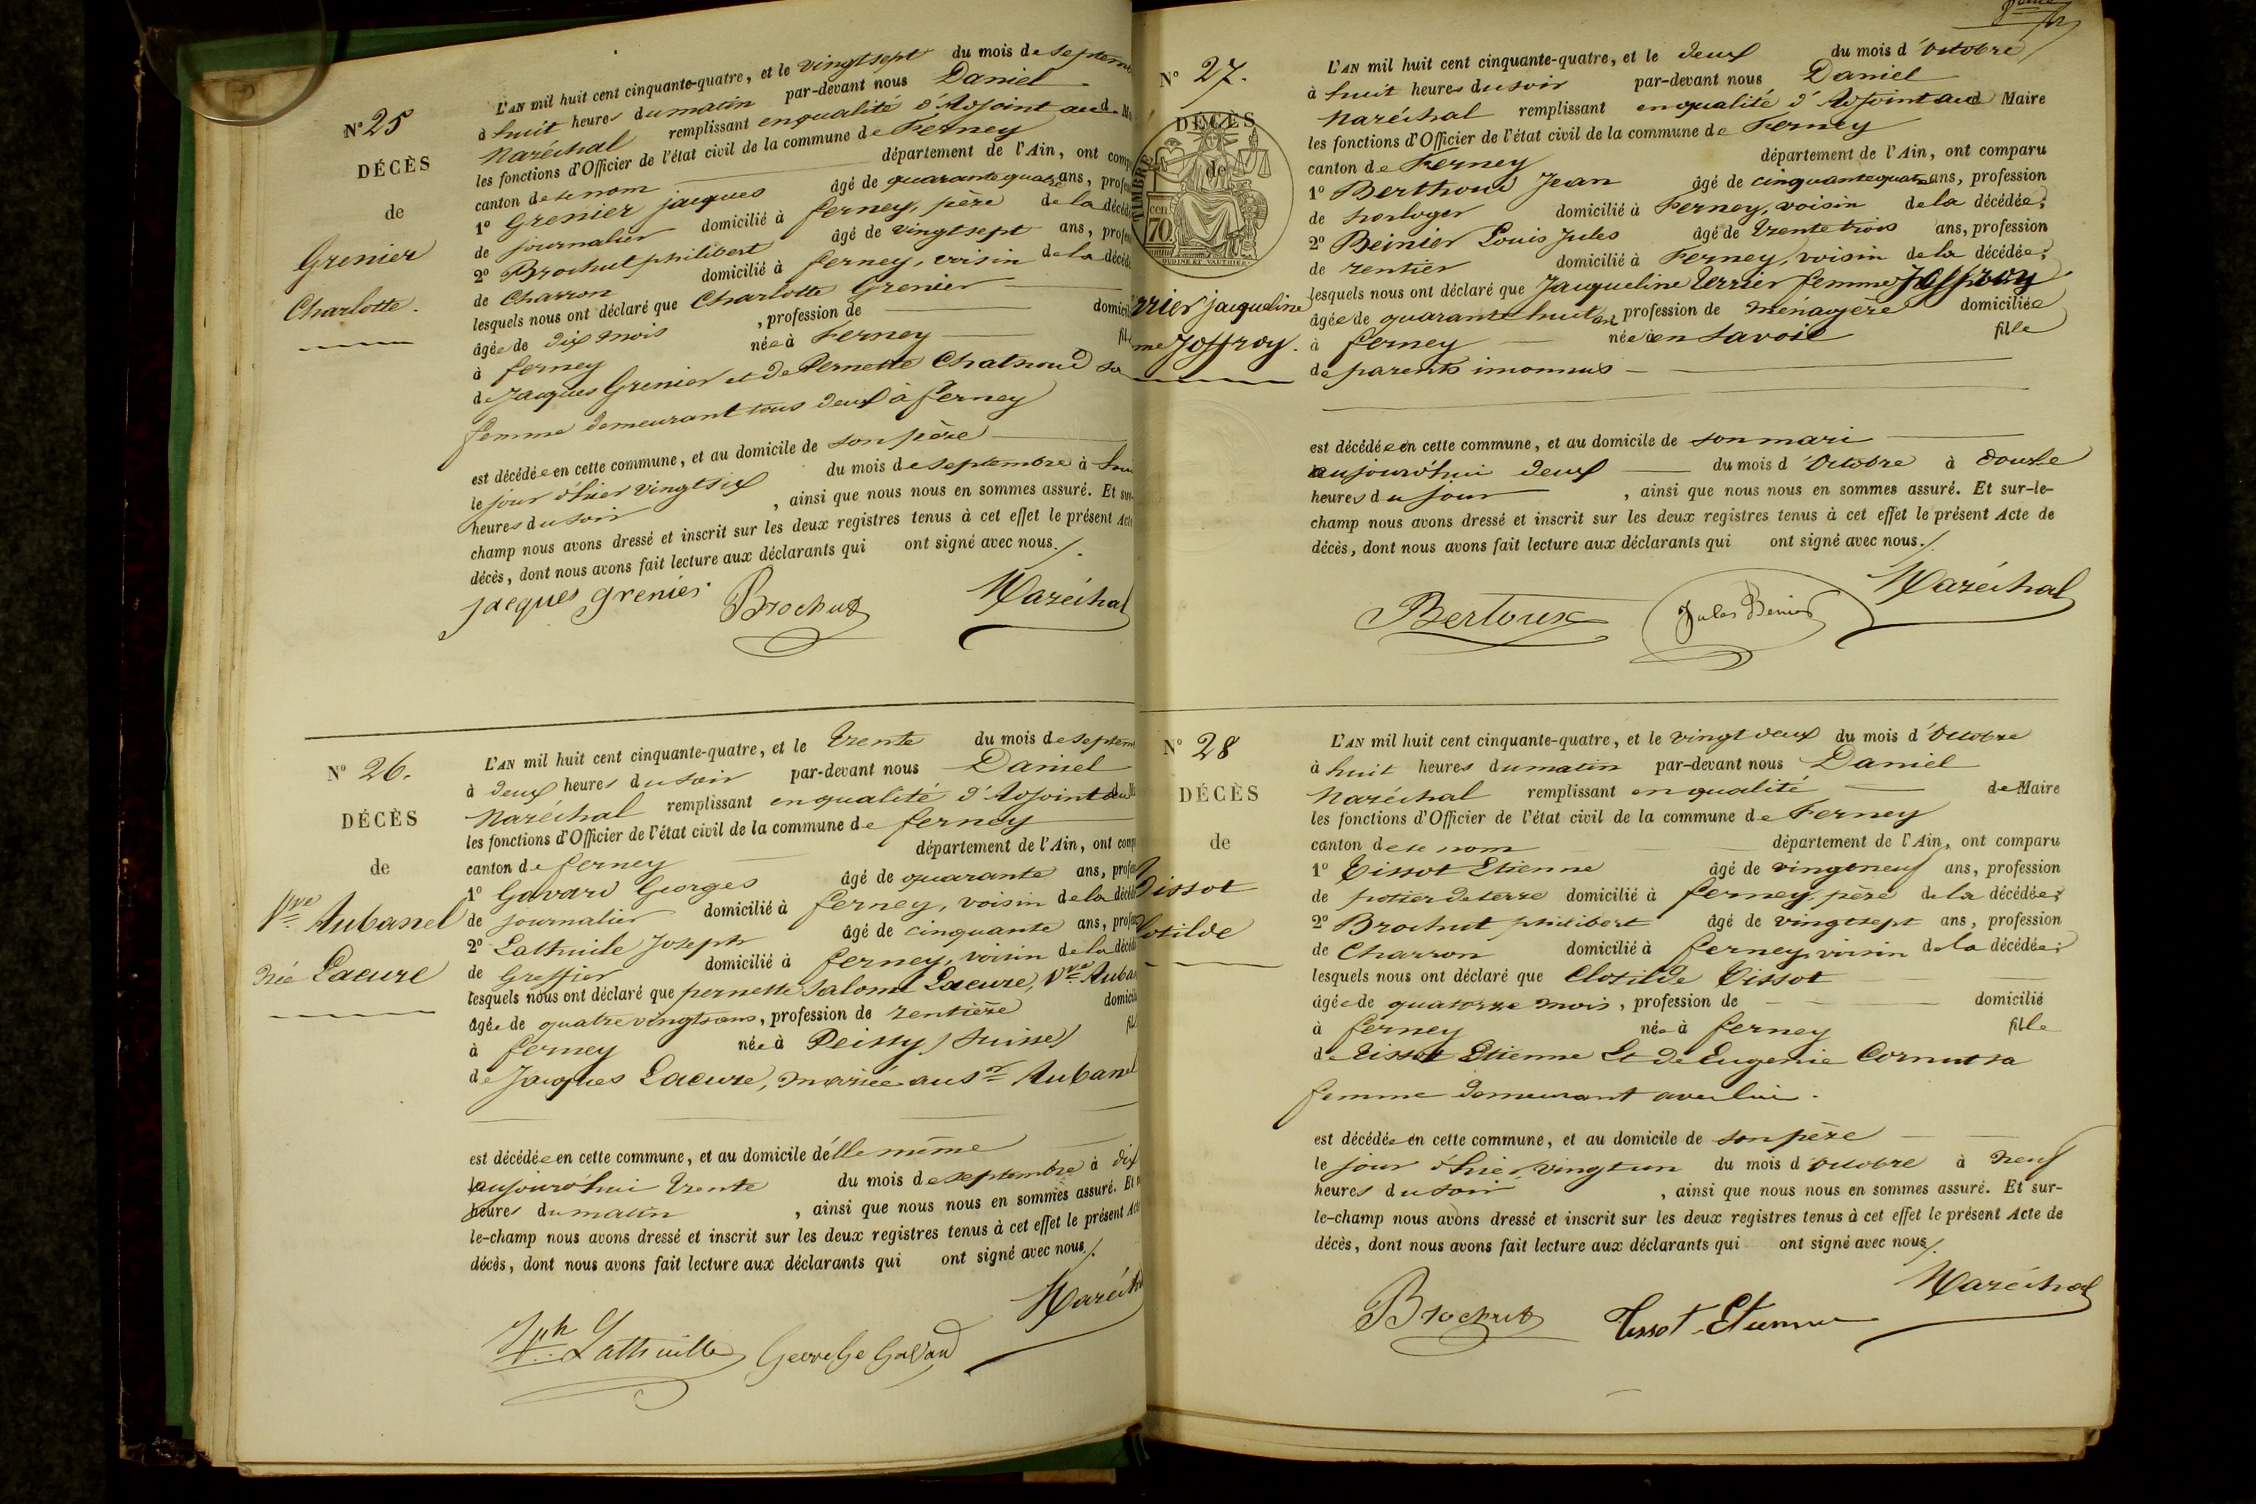 N° 25
DÉCÈS
de
Grenier
Charlotte.
L'AN mil huit cent cinquante-quatre, et le vingt sept du mois de septem
à huit heures du matin par-devant nous Daniel
Maréchal remplissant en qualité d'Adjoint au d. M
les fonctions d'Officier de l'état civil de la commune de Ferney
canton de ce nom département de l'Ain, ont comp
1° Grenier jacques âgé de quarante quatre ans, profe
de journalier domicilié à ferney, père de la décéd
2° Brochut philibert âgé de vingt sept ans, profe
de Charron domicilié à ferney, voisin de la décéd
lesquels nous ont déclaré que Charlotte Grenier
âgée de dix mois, profession de domicil
à ferney née à Ferney fil
de Jacques Grenier et de Pernette Chatnoud sa
femme demeurant tous deux à ferney
est décédée en cette commune, et au domicile de son père
le jour d'hier vingt six du mois de septembre à
heures du soir, ainsi que nous nous en sommes assuré. Et sur-
champ nous avons dressé et inscrit sur les deux registres tenus à cet effet le présent Acte
décès, dont nous avons fait lecture aux déclarants qui ont signé avec nous.
jacques grenier Brochut Maréchal
N° 26.
DÉCÈS
de
Vve Aubanel
née Lacure
L'AN mil huit cent cinquante-quatre, et le trente du mois de septem
à deux heures du soir par-devant nous Daniel
Maréchal remplissant en qualité d'Adjoint au d. M
les fonctions d'Officier de l'état civil de la commune de ferney
canton de ferney département de l'Ain, ont comp
1° Gavard Georges âgé de quarante ans, profe
de journalier domicilié à ferney, voisin de la décéd
2° Lathuile Joseph âgé de cinquante ans, profe
de Greffier domicilié à ferney, voisin de la décéd
lesquels nous ont déclaré que pernette Salomé Lacure, Vve Auba
âgée de quatre vingts ans, profession de rentière domicil
à ferney née à Peissy (Suisse) fil
de Jacques Lacure, mariée au Sr Aubanel
est décédée en cette commune, et au domicile d'élle même
aujourd'hui trente du mois de septembre à dix
heures du matin, ainsi que nous nous en sommes assuré. Et
le-champ nous avons dressé et inscrit sur les deux registres tenus à cet effet le présent Acte
décès, dont nous avons fait lecture aux déclarants qui ont signé avec nous.
Jph Lathuille George Gavard Maréch
N° 27.
DÉCÈS
de
TIMBRE
cen 70
rrier jacqueline
me Joffroy.
L'AN mil huit cent cinquante-quatre, et le deux du mois d'octobre
à huit heures du soir par-devant nous Daniel
Maréchal remplissant en qualité d'Adjoint au d. Maire
les fonctions d'Officier de l'état civil de la commune de Ferney
canton de Ferney département de l'Ain, ont comparu
1° Berthoud Jean âgé de cinquante quatre ans, profession
de horloger domicilié à Ferney, voisin de la décédée;
2° Beinier Louis Jules âgé de trente trois ans, profession
de rentier domicilié à Ferney, voisin de la décédée;
lesquels nous ont déclaré que Jacqueline Terrier femme Joffroy
âgée de quarante huit an profession de ménagère domiciliée
à ferney née en Savoie fille
de parents inconnus
est décédée en cette commune, et au domicile de son mari
aujourd'hui deux du mois d'Octobre à douze
heures du jour, ainsi que nous nous en sommes assuré. Et sur-le-
champ nous avons dressé et inscrit sur les deux registres tenus à cet effet le présent Acte de
décès, dont nous avons fait lecture aux déclarants qui ont signé avec nous.
Bertoux Jules Beinier Maréchal
N° 28
DÉCÈS
de
Tissot
lotilde
L'AN mil huit cent cinquante-quatre, et le vingt deux du mois d'Octobre
à huit heures du matin par-devant nous Daniel
Maréchal remplissant en qualité de Maire
les fonctions d'Officier de l'état civil de la commune de Ferney
canton de ce nom département de l'Ain, ont comparu
1° Tissot Etienne âgé de vingt neuf ans, profession
de potier de terre domicilié à ferney, père de la décédée;
2° Brochut philibert âgé de vingt sept ans, profession
de Charron domicilié à ferney, voisin de la décédée;
lesquels nous ont déclaré que Clotilde Tissot
âgée de quatorze mois, profession de domicilié
à ferney née à ferney fille
de Tissot Etienne Et de Eugenie Cornut sa
femme demeurant avec lui.
est décédée en cette commune, et au domicile de son père
le jour d'hier vingt un du mois d'Octobre à neuf
heures du soir, ainsi que nous nous en sommes assuré. Et sur-
le-champ nous avons dressé et inscrit sur les deux registres tenus à cet effet le présent Acte de
décès, dont nous avons fait lecture aux déclarants qui ont signé avec nous.
Brochut Tissot Etienne Maréchal